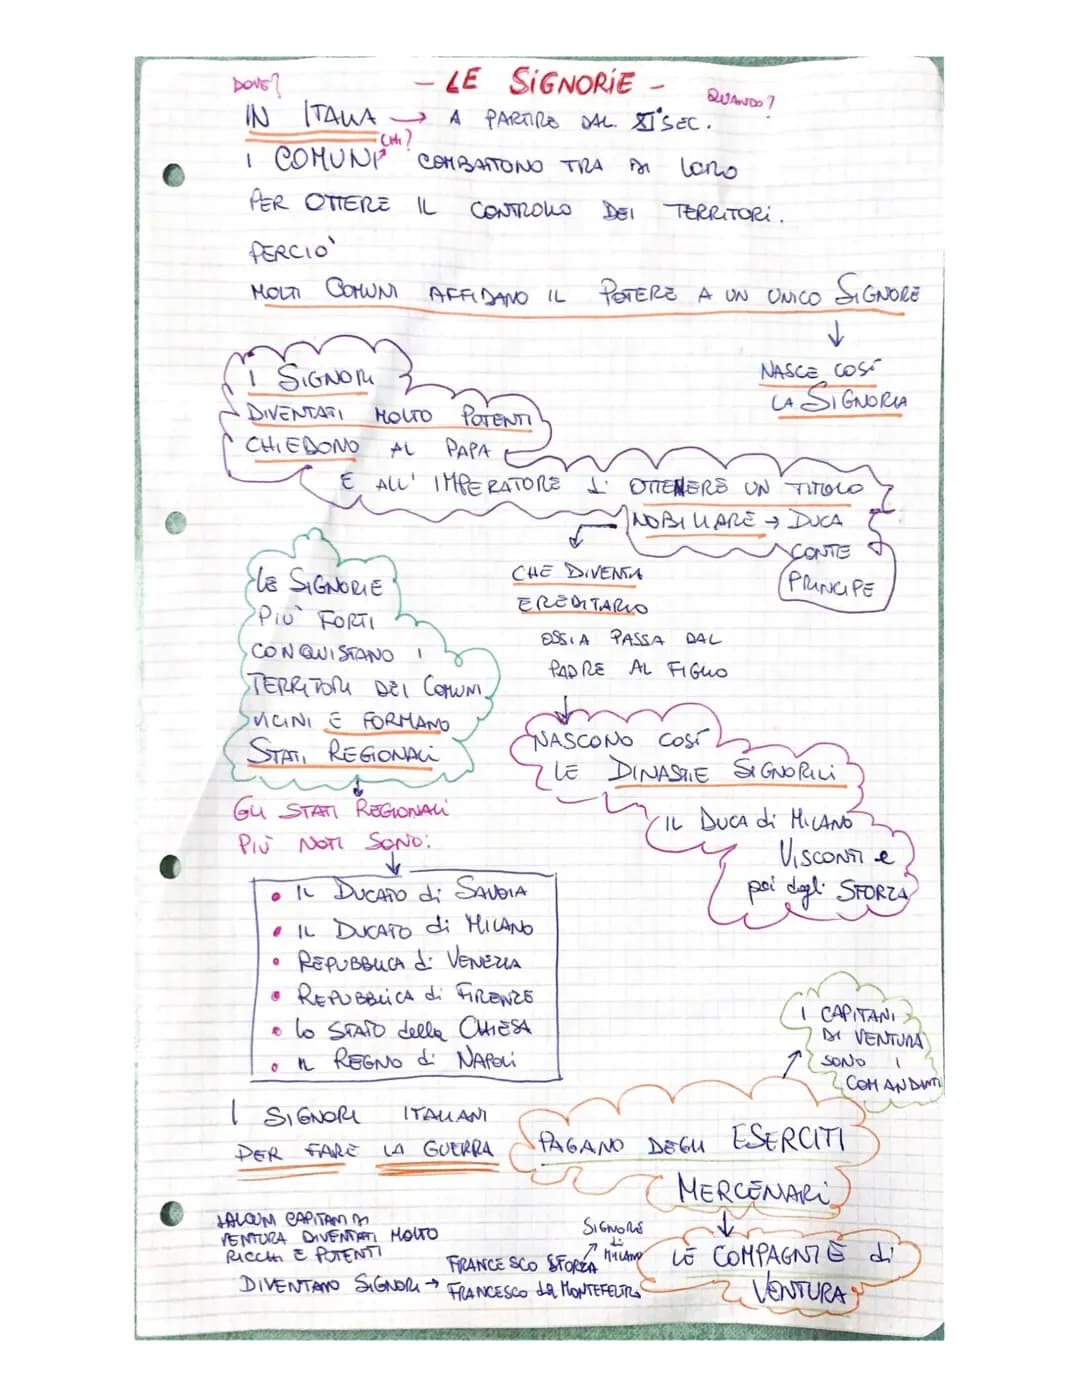 - LE SIGNORIE -
DOVE?
QUANDO?
IN ITALIA → A PARTIRE DAL XI° SEC.
CHI?
I COMUNI COMBATTONO TRA DI LORO
PER OTTERE IL CONTROLLO DEI TERRITORI.
PERCIO'
MOLTI COMUNI AFFIDANO IL POTERE A UN UNICO SIGNORE
↓
NASCE COSÍ
LA SIGNORIA
I SIGNORI
DIVENTATI MOLTO POTENTI
CHIEDONO AL PAPA
E ALL' IMPERATORE di OTTENERE UN TITOLO
NOBILIARE → DUCA
CONTE
PRINCIPE
CHE DIVENTA
EREDITARIO
OSSIA PASSA DAL
PADRE AL FIGLIO
↓
NASCONO COSÍ
LE DINASTIE SIGNORILI
IL DUCA di MILANO
VISCONTI e
poi degli SFORZA
LE SIGNORIE
PIU' FORTI
CONQUISTANO I
TERRITORI DEI COMUNI
VICINI E FORMANO
STATI REGIONALI
↓
GLI STATI REGIONALI
PIÙ NOTI SONO:
↓
• IL DUCATO di SAVOIA
• IL DUCATO di MILANO
• REPUBBLICA di VENEZIA
• REPUBBLICA di FIRENZE
• LO STATO della CHIESA
• IL REGNO di NAPOLI
I CAPITANI
DI VENTURA
SONO I
COMANDANTI
I SIGNORI ITALIANI
PER FARE LA GUERRA
PAGANO DEGLI ESERCITI
MERCENARI
↓
LE COMPAGNIE di
VENTURA
ALCUNI CAPITANI DI
VENTURA DIVENTATI MOLTO
RICCHI E POTENTI
DIVENTANO SIGNORI →
FRANCESCO SFORZA
SIGNORE
di
MILANO
FRANCESCO DA MONTEFELTRO